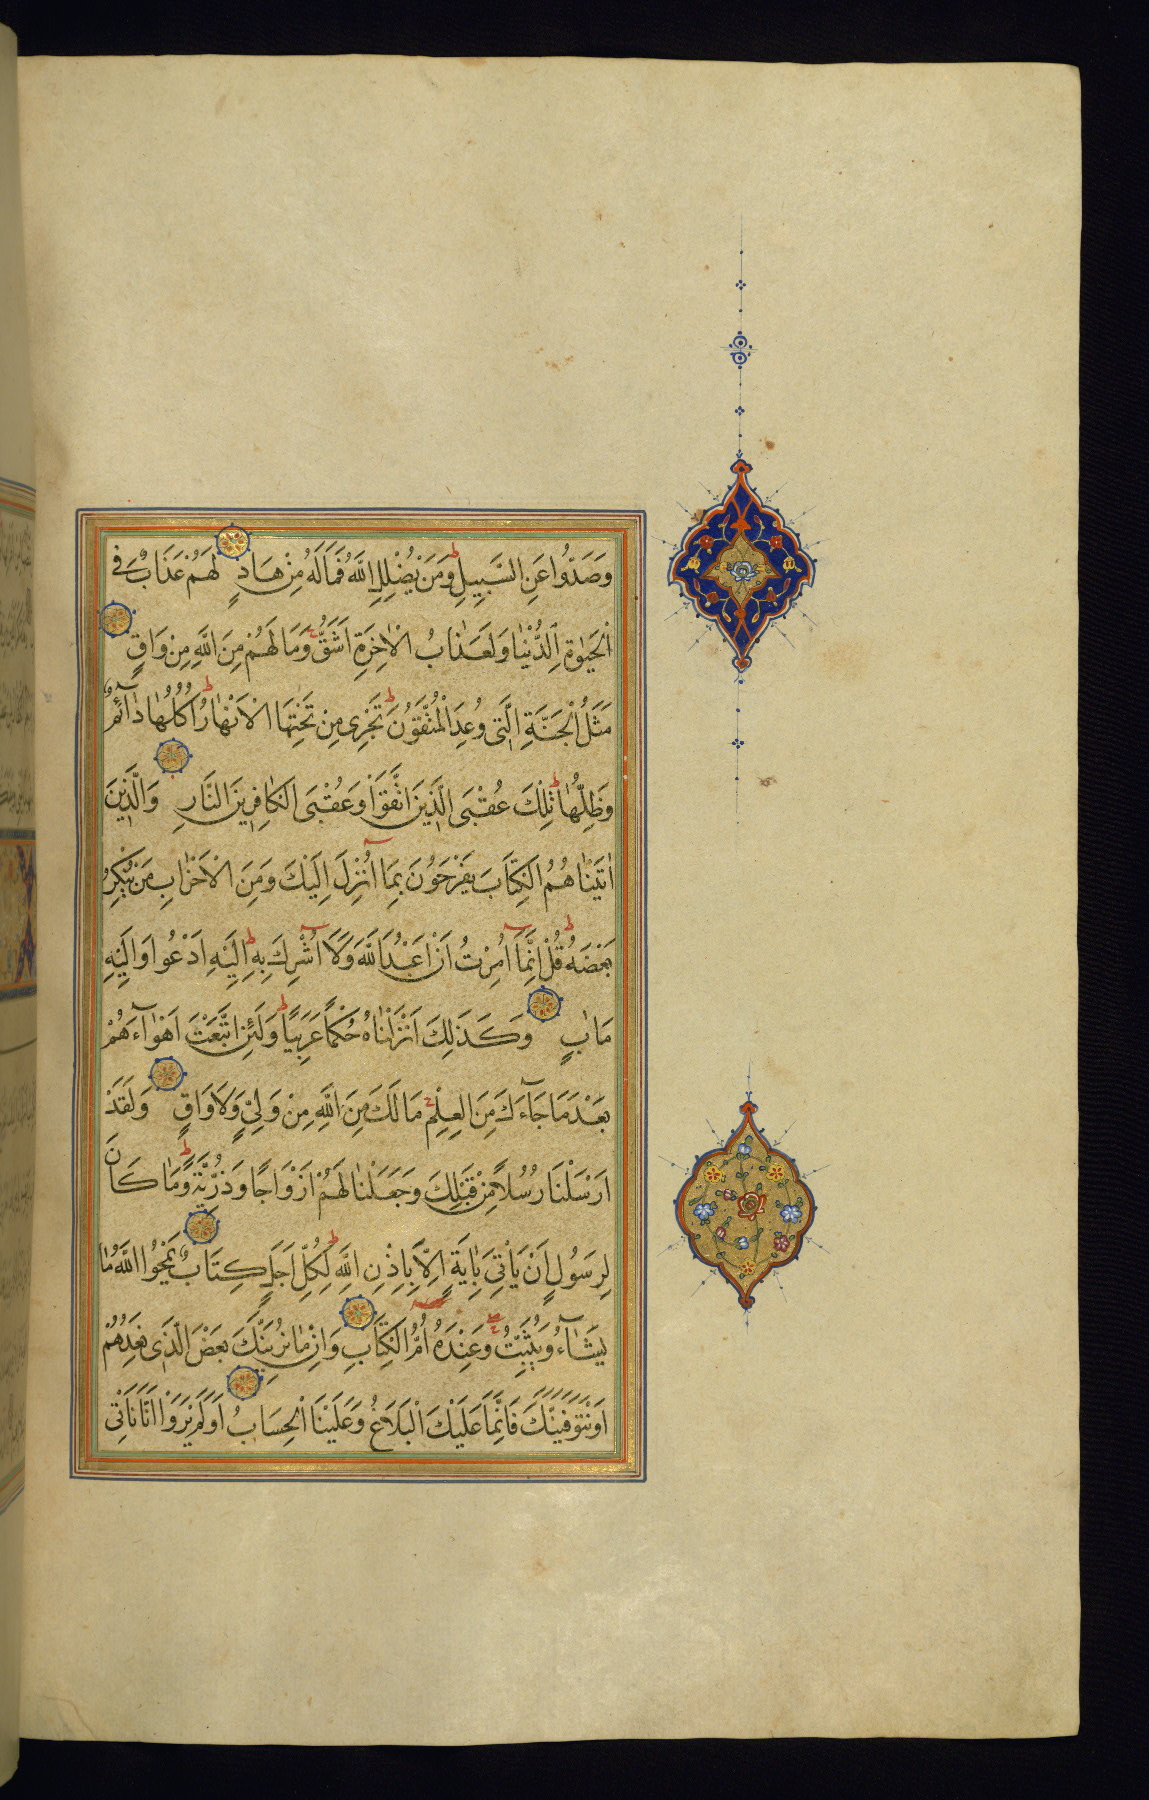 وَصَدُّوا عَنِ السَّبِيلِ وَمَنْ يُضْلِلِ اللَّهُ فَمَا لَهُ مِنْ هَادٍ لَهُمْ عَذَابٌ فِي
الْحَيٰوةِ الدُّنْيَا وَلَعَذَابُ الْاٰخِرَةِ اَشَقُّ وَمَا لَهُمْ مِنَ اللَّهِ مِنْ وَاقٍ
مَثَلُ الْجَنَّةِ الَّتِي وُعِدَ الْمُتَّقُونَ تَجْرِي مِنْ تَحْتِهَا الْاَنْهَارُ اُكُلُهَا دَآئِمٌ
وَظِلُّهَا تِلْكَ عُقْبَى الَّذِينَ اتَّقَوْا وَعُقْبَى الْكَافِرِينَ النَّارِ وَالَّذِينَ
اٰتَيْنَاهُمُ الْكِتَابَ يَفْرَحُونَ بِمَا اُنْزِلَ اِلَيْكَ وَمِنَ الْاَحْزَابِ مَنْ يُنْكِرُ
بَعْضَهُ قُلْ اِنَّمَا اُمِرْتُ اَنْ اَعْبُدَ اللَّهَ وَلَا اُشْرِكَ بِهِ اِلَيْهِ اَدْعُوا وَاِلَيْهِ
مَاٰبِ وَكَذَلِكَ اَنْزَلْنَاهُ حُكْمًا عَرَبِيًّا وَلَئِنِ اتَّبَعْتَ اَهْوَآءَهُمْ
بَعْدَ مَا جَآءَكَ مِنَ الْعِلْمِ مَا لَكَ مِنَ اللَّهِ مِنْ وَلِيٍّ وَلَا وَاقٍ وَلَقَدْ
اَرْسَلْنَا رُسُلًا مِنْ قَبْلِكَ وَجَعَلْنَا لَهُمْ اَزْوَاجًا وَذُرِّيَّةً وَمَا كَانَ
لِرَسُولٍ اَنْ يَاْتِيَ بِاٰيَةٍ اِلَّا بِاِذْنِ اللَّهِ لِكُلِّ اَجَلٍ كِتَابٌ يَمْحُوا اللَّهُ مَا
يَشَآءُ وَيُثْبِتُ وَعِنْدَهُ اُمُّ الْكِتَابِ وَاِنْ مَا نُرِيَنَّكَ بَعْضَ الَّذِي نَعِدُهُمْ
اَوْ نَتَوَفَّيَنَّكَ فَاِنَّمَا عَلَيْكَ الْبَلَاغُ وَعَلَيْنَا الْحِسَابُ اَوَلَمْ يَرَوْا اَنَّا نَاْتِي